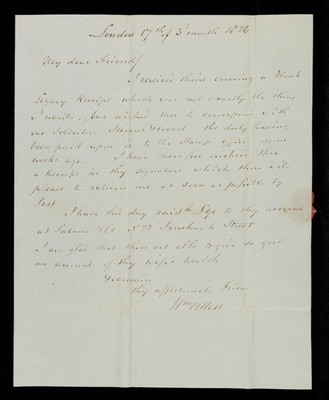 London 17th of 3 month 1826
My dear Friend
I received this evening a Blank
Legacy Receipt which was not exactly the thing
I wanted, but wished thee to correspond with
our Solicitor the duty having
been paid upon it to the Stamp office some
weeks ago. I have therefore inclosed thee
a Receipt for thy signature which thou wilt
please to return me as soon as possible by
Post
I have this day paid the £90 to thy account
at Palmer & Co No 22 Fenchurch Street
I am glad that thou art able to give so good
an account of thy wife's health
I remain
thy affectionate Friend
Wm Allen